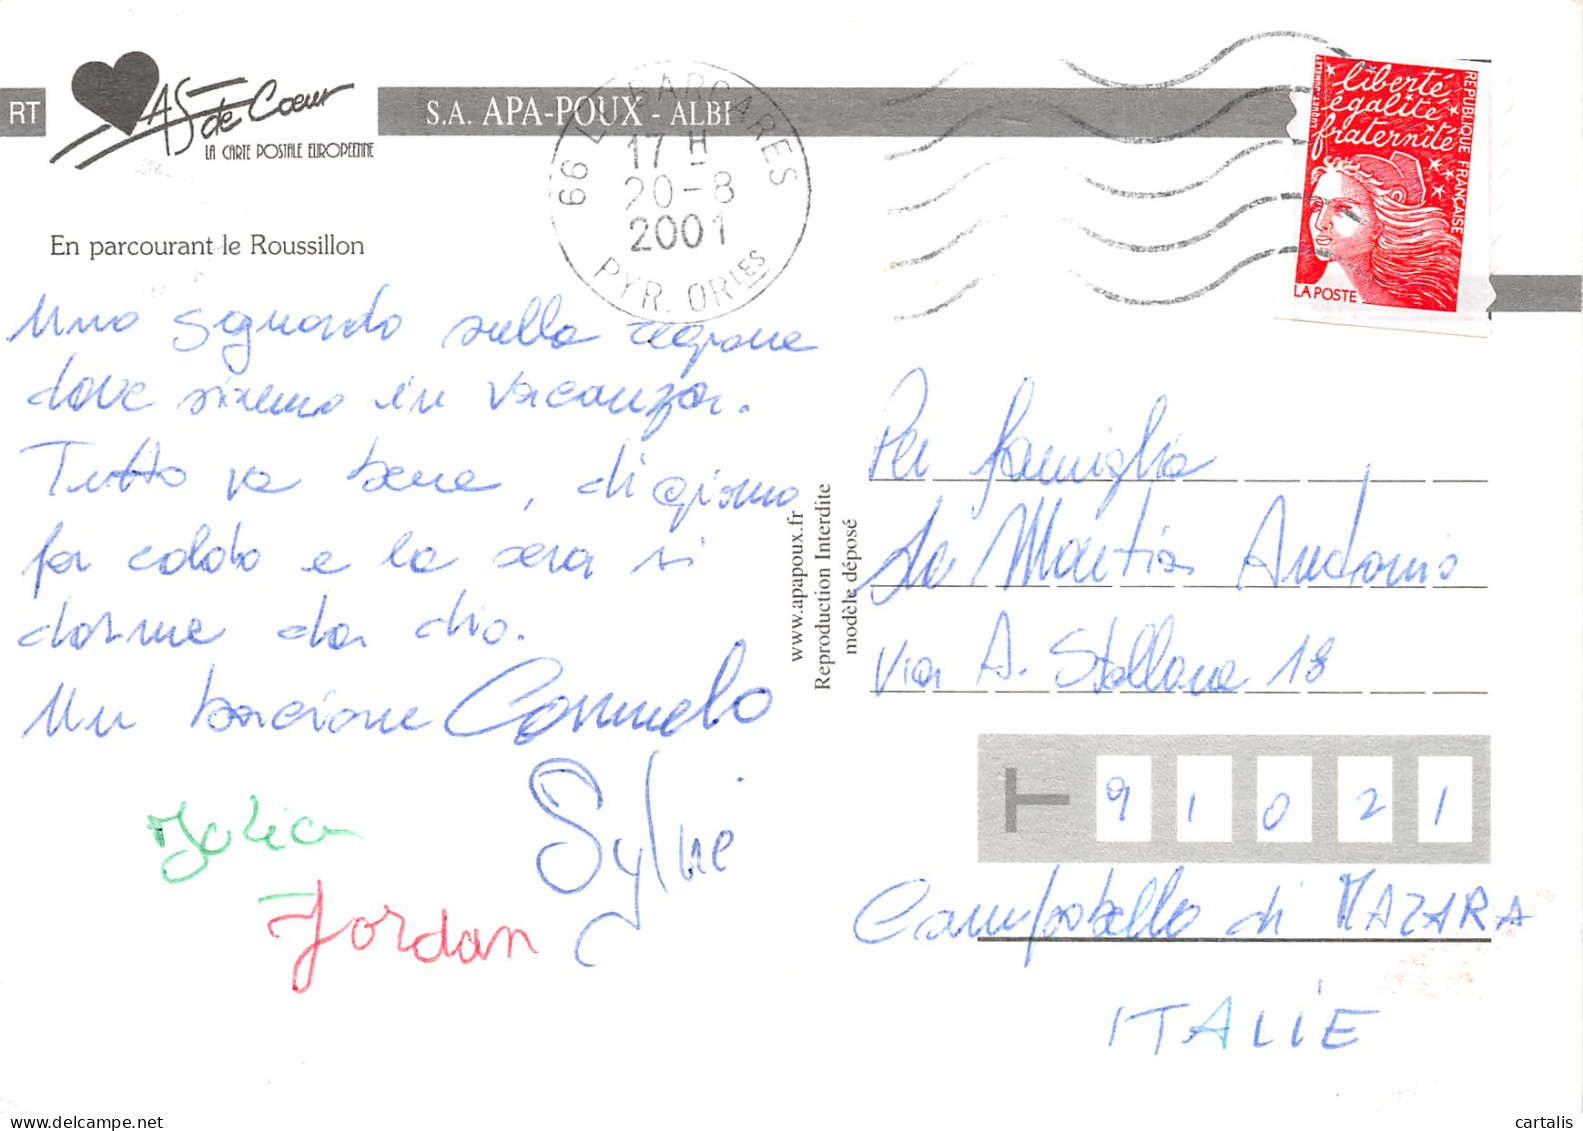 RT
As de Coeur
LA CARTE POSTALE EUROPEENNE
S.A. APA-POUX - ALBI
66 LE BARCARES
17 H
20-8
2001
PYR. ORLES
liberté
égalité
fraternité
REPUBLIQUE FRANÇAISE
LA POSTE
En parcourant le Roussillon
Uno sguardo sulla regione
dove siremo in vacanza.
Tutto va bene, di giorno
fa caldo e la sera si
dorme da dio.
Un bacione Carmelo
Sylvie
Jordan
www.apapoux.fr
Reproduction Interdite
modèle déposé
Per famiglia
La Martia Antonio
Via A. Stallone 18
91021
Campobello di MAZARA
ITALIE
cartalis